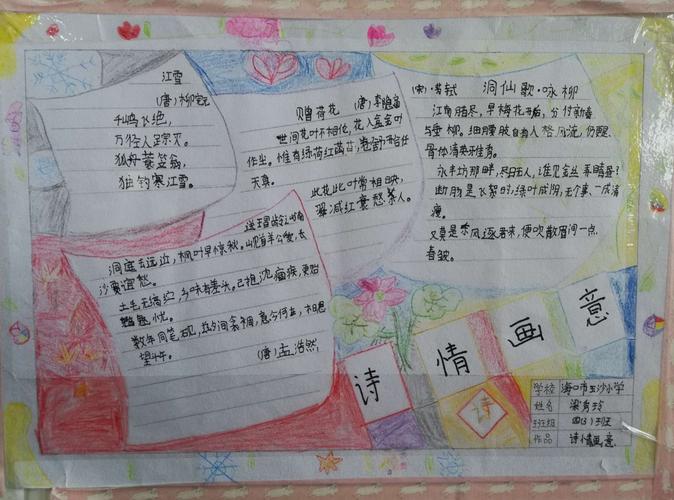 江雪
(唐)柳宗元
千鸟飞绝,
万径人踪灭。
孤舟蓑笠翁,
独钓寒江雪。
赠荷花
(唐)李商隐
世间花叶不相伦,花入金盆叶
作尘。惟有绿荷红菡萏,卷舒开合任
天真。
此花此叶常相映,
翠减红衰愁杀人。
(宋)·苏轼 洞仙歌·咏柳
江南腊尽,早梅花开后,分付新春
与垂柳。细腰肢自有入格风流,仍更、
骨体清英雅秀。
永丰坊那畔,尽日无人,谁见金丝弄晴昼?
断肠是飞絮时,绿叶成阴,无个事、一成消
瘦。
又莫是东风逐君来,便吹散眉间一点
春皱。
送王昌龄之岭南
洞庭去远近,枫叶早惊秋。岘首羊公爱,长
沙贾谊愁。
土毛无缟纻,乡味有查头。已抱沈痼疾,更贻
魑魅忧。
数年同笔砚,兹夕间衾裯。意气今何在,相思
望斗牛。
(唐)孟浩然
诗情画意
诗
学校 海口市玉沙小学
姓名 梁秀玲
班级 四(3)班
作品 诗情画意